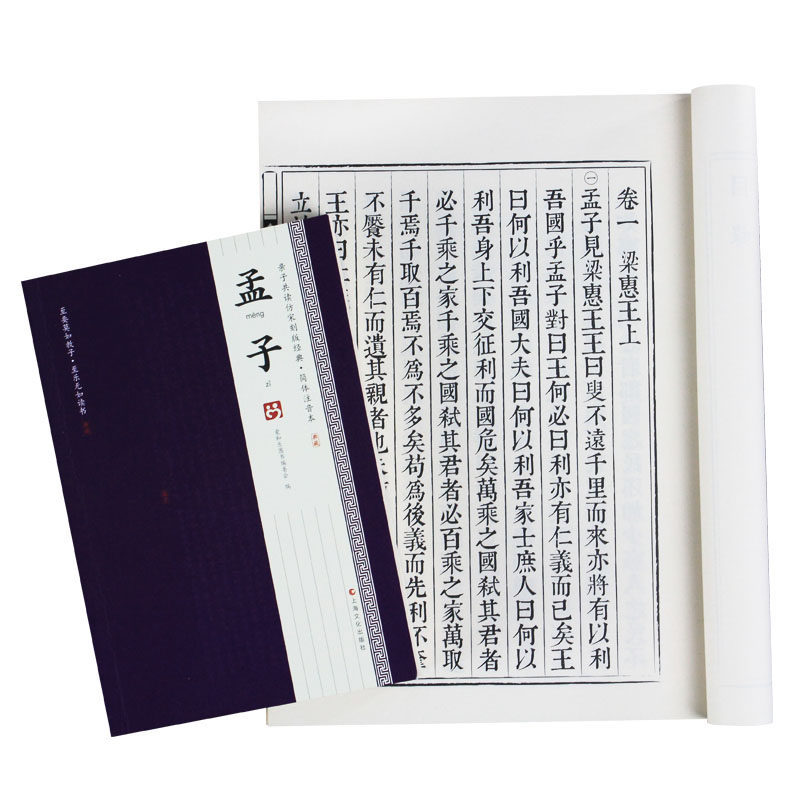 卷一 梁惠王上
㊀孟子見梁惠王王曰叟不遠千里而來亦將有以利
吾國乎孟子對曰王何必曰利亦有仁義而已矣王
曰何以利吾國大夫曰何以利吾家士庶人曰何以
利吾身上下交征利而國危矣萬乘之國弒其君者
必千乘之家千乘之國弒其君者必百乘之家萬取
千焉千取百焉不爲不多矣苟爲後義而先利不奪
不饜未有仁而遺其親者也
王亦曰仁
立
亲子共读仿宋刻版经典·简体注音本
典藏
孟
mèng
子
zǐ
编
上海文化出版社
至要莫如教子·至乐无如读书